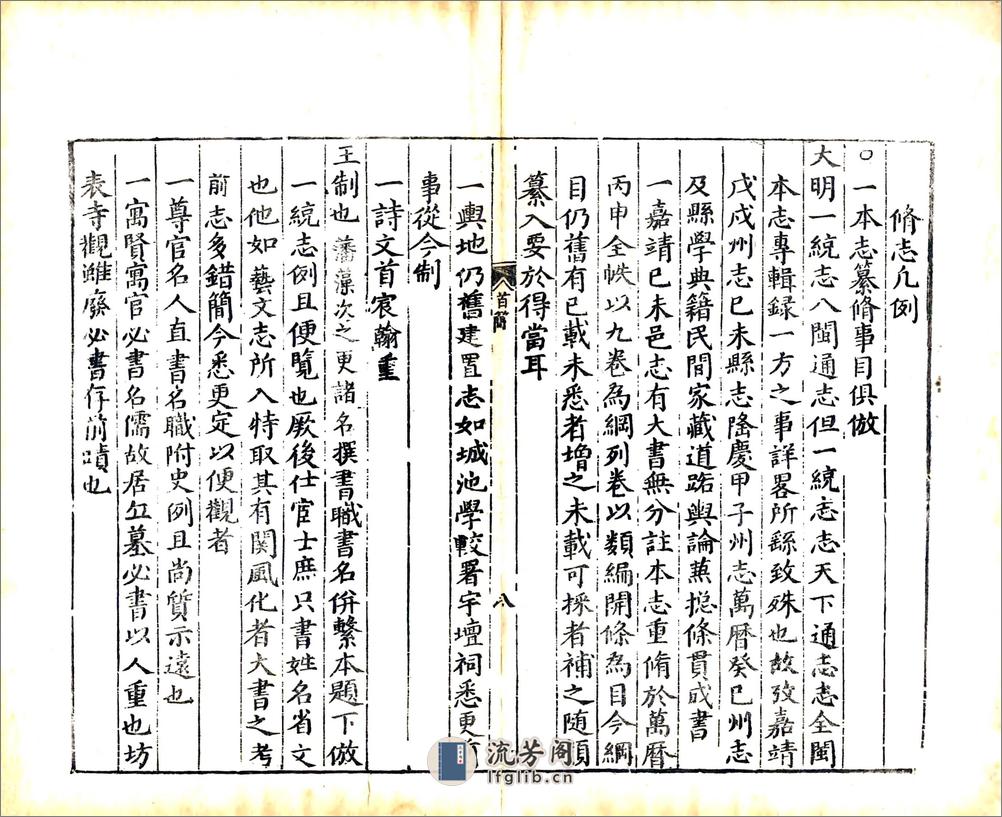 脩志凡例
○一本志纂脩事目俱倣
大明一統志八閩通志但一統志志天下通志志全閩
本志專輯録一方之事詳畧所繇致殊也故攷嘉靖
戊戌州志己未縣志隆慶甲子州志萬曆癸巳州志
及縣學典籍民間家藏道路輿論蒸揔條貫成書
一嘉靖己未邑志有大書無分註本志重脩於萬曆
丙申全帙以九卷為綱列卷以類編開條為目今綱
目仍舊有已載未悉者增之未載可採者補之随類
纂入要於得當耳
首簡
八
一輿地仍舊建置志如城池學較署宇壇祠悉更
事從今制
一詩文首宸翰重
王制也藩藻次之更諸名撰書職書名併繫本題下倣
一統志例且便覽也厥後仕宦士庶只書姓名省文
也他如藝文志所入特取其有関風化者大書之考
前志多錯簡今悉更定以便觀者
一尊官名人直書名職附史例且尚質示遠也
一寓賢寓官必書名儒故居丘墓必書以人重也坊
表寺觀雖廢必書存前蹟也
流芳阁
lfglib.cn